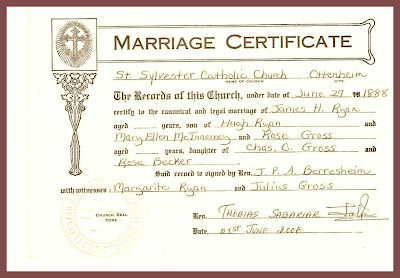 MARRIAGE CERTIFICATE
St. Sylvester Catholic Church Ottenheim
NAME OF CHURCH CITY
The Records of this Church, under date of June 27 1888
certify to the canonical and legal marriage of James H. Ryan
aged years, son of Hugh Ryan and
Mary Ellen McInerney and Rose Gross
aged years, daughter of Chas. G. Gross and
Rose Becker
Said record is signed by Rev. J. P. A. Berresheim
with witnesses: Margarite Ryan and Julius Gross
CHURCH SEAL
HERE
Rev. THOBIAS SABARIAR
Date, 01st JUNE 2006